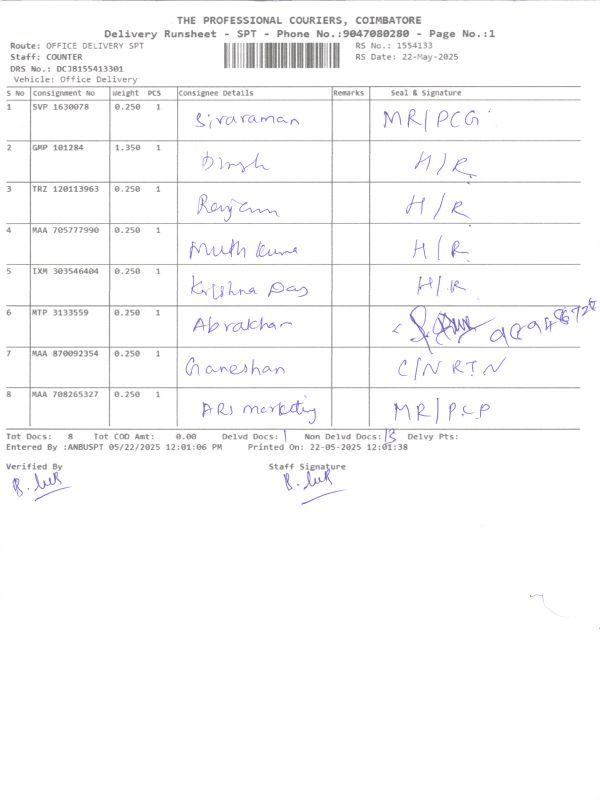 THE PROFESSIONAL COURIERS, COIMBATORE
Delivery Runsheet - SPT - Phone No.:9047080280 - Page No.:1
Route: OFFICE DELIVERY SPT RS No.: 1554133
Staff: COUNTER RS Date: 22-May-2025
DRS No.: DCJB155413301
Vehicle: Office Delivery
S No Consignment No Weight PCS Consignee Details Remarks Seal & Signature
1 SVP 1630078 0.250 1 Sivaraman MR/PCG
2 GMP 101284 1.350 1 H/R
3 TRZ 120113963 0.250 1 H/R
4 MAA 705777990 0.250 1 Muth Kuma H/R
5 IXM 303546404 0.250 1 Krishna Das H/R
6 MTP 3133559 0.250 1 Abrakhan
7 MAA 870092354 0.250 1 Ganeshan C/N RTN
8 MAA 708265327 0.250 1 ARS marketing MR/P.C.P
Tot Docs: 8 Tot COD Amt: 0.00 Delvd Docs: 1 Non Delvd Docs: Delvy Pts:
Entered By :ANBUSPT 05/22/2025 12:01:06 PM Printed On: 22-05-2025 12:01:38
Verified By Staff Signature